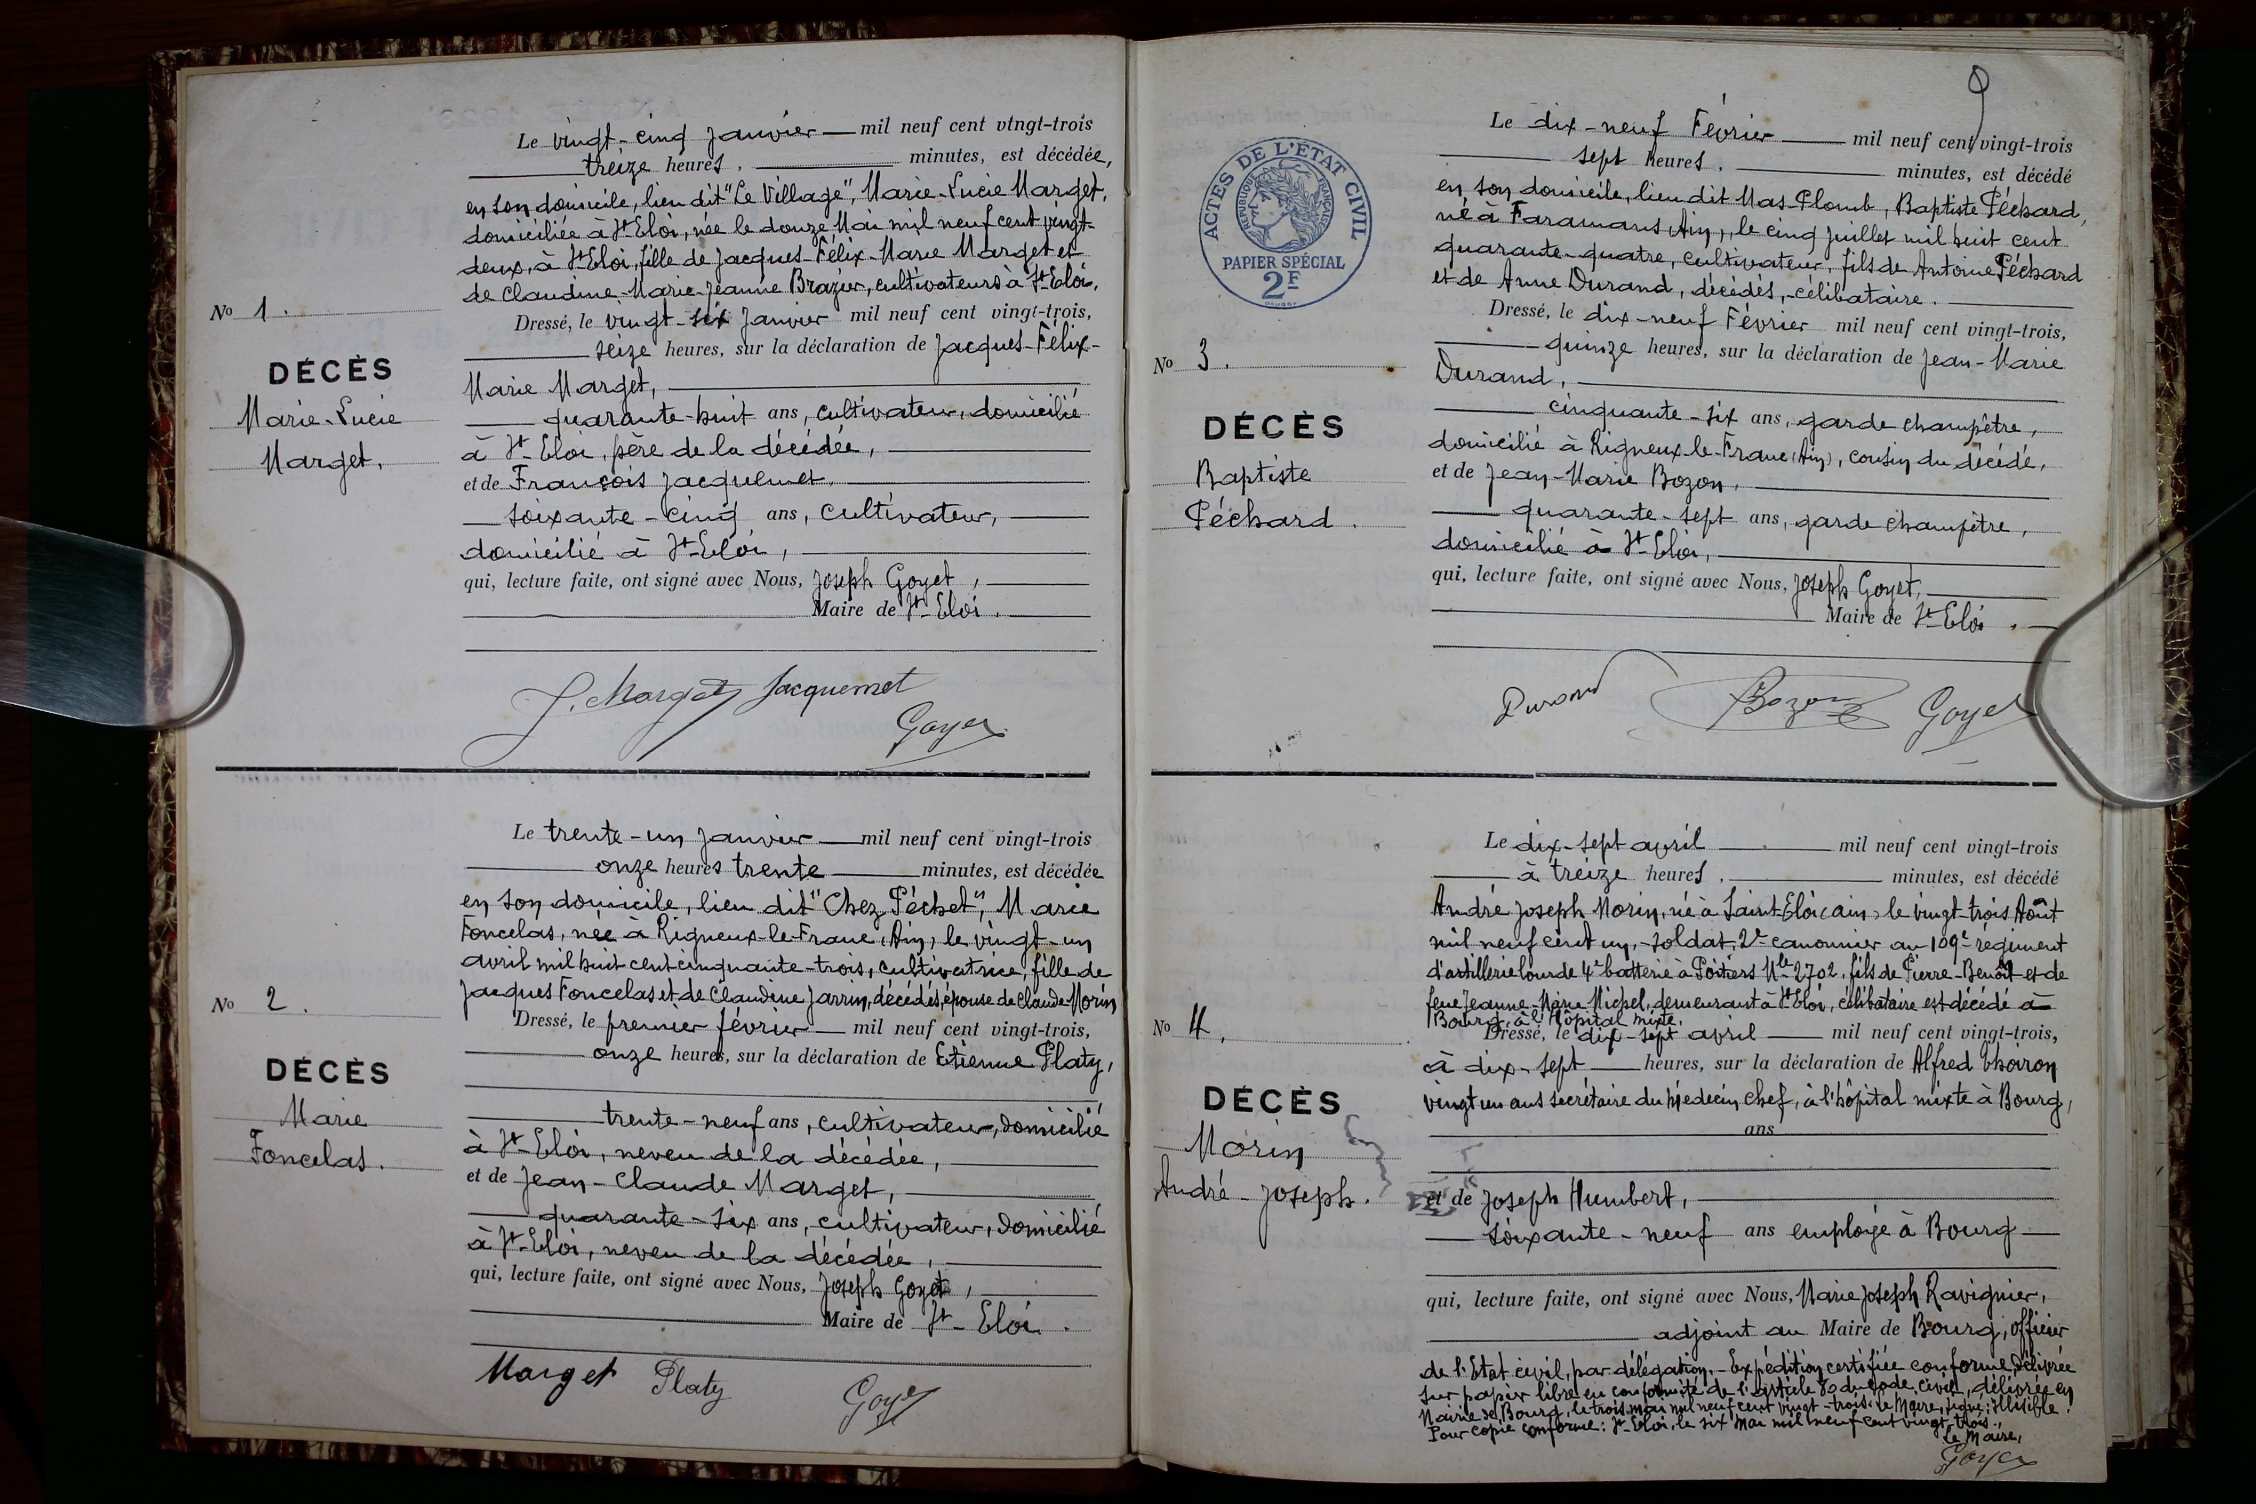 Le vingt-cinq Janvier mil neuf cent vingt-trois
treize heures. minutes, est décédée,
en son domicile, lieu dit "Le Village", Marie-Lucie Marget,
domiciliée à St-Eloi, née le douze Mai mil neuf cent vingt-
deux, à St-Eloi, fille de Jacques-Félix-Marie Marget et
de Claudine-Marie-Jeanne Brazier, cultivateurs à St-Eloi.
No 1.
Dressé, le vingt-six Janvier mil neuf cent vingt-trois,
seize heures, sur la déclaration de Jacques-Félix-
DÉCÈS
Marie-Lucie
Marget.
Marie Marget,
quarante-huit ans, cultivateur, domicilié
à St-Eloi, père de la décédée,
et de François Jacquemet,
soixante-cinq ans, cultivateur,
domicilié à St-Eloi,
qui, lecture faite, ont signé avec Nous, Joseph Goyet,
Maire de St-Eloi.
J. Marget Jacquemet
Goyet
Le trente-un Janvier mil neuf cent vingt-trois
onze heures trente minutes, est décédée
en son domicile, lieu dit "Chez Péchet", Marie
Foncelas, née à Rigneux-le-Franc (Ain), le vingt-un
avril mil huit cent cinquante-trois, cultivatrice, fille de
Jacques Foncelas et de Claudine Jarrin, décédés, épouse de Claude Morin
No 2.
Dressé, le premier février mil neuf cent vingt-trois,
onze heures, sur la déclaration de Etienne Platy,
DÉCÈS
Marie
Foncelas.
trente-neuf ans, cultivateur, domicilié
à St-Eloi, neveu de la décédée,
et de Jean-Claude Marget,
quarante-six ans, cultivateur, domicilié
à St-Eloi, neveu de la décédée,
qui, lecture faite, ont signé avec Nous, Joseph Goyet,
Maire de St-Eloi.
Marget Platy
Goyet
9
ACTES DE L'ÉTAT CIVIL
REPUBLIQUE FRANÇAISE
PAPIER SPÉCIAL
2F
Le dix-neuf Février mil neuf cent vingt-trois
sept heures. minutes, est décédé
en son domicile, lieu dit Mas-Plomb, Baptiste Péchard,
né à Faramans (Ain), le cinq Juillet mil huit cent
quarante-quatre, cultivateur, fils de Antoine Péchard
et de Anne Durand, décédés, célibataire.
Dressé, le dix-neuf Février mil neuf cent vingt-trois,
No 3.
quinze heures, sur la déclaration de Jean-Marie
Durand,
DÉCÈS
Baptiste
Péchard.
cinquante-six ans, garde champêtre,
domicilié à Rigneux-le-Franc (Ain), cousin du décédé,
et de Jean-Marie Bozon,
quarante-sept ans, garde champêtre,
domicilié à St-Eloi,
qui, lecture faite, ont signé avec Nous, Joseph Goyet,
Maire de St-Eloi.
Durand Bozon Goyet
Le dix-sept avril mil neuf cent vingt-trois
à treize heures. minutes, est décédé
André Joseph Morin, né à Saint-Eloi (Ain) le vingt-trois Août
mil neuf cent un, soldat, 2e canonnier au 109e régiment
d'artillerie lourde 4e batterie à Poitiers Mle 2702, fils de Pierre-Benoît et de
feue Jeanne-Marie Michel, demeurant à St-Eloi, célibataire est décédé à
Bourg, à l'Hôpital mixte.
No 4.
Dressé, le dix-sept avril mil neuf cent vingt-trois,
à dix-sept heures, sur la déclaration de Alfred Thoiron
vingt un ans secrétaire du Médecin Chef, à l'hôpital mixte à Bourg,
ans
DÉCÈS
Morin
André-Joseph.
et de Joseph Humbert,
soixante-neuf ans employé à Bourg
qui, lecture faite, ont signé avec Nous, Marie Joseph Ravignier,
adjoint au Maire de Bourg, officier
de l'Etat civil, par délégation. - Expédition certifiée conforme, délivrée
sur papier libre en conformité de l'article 80 du code civil, délivrée en
Mairie de Bourg, le trois mai mil neuf cent vingt-trois. Le Maire, signé: illisible.
Pour copie conforme: St-Eloi, le six mai mil neuf cent vingt-trois.,
Le Maire,
Goyet